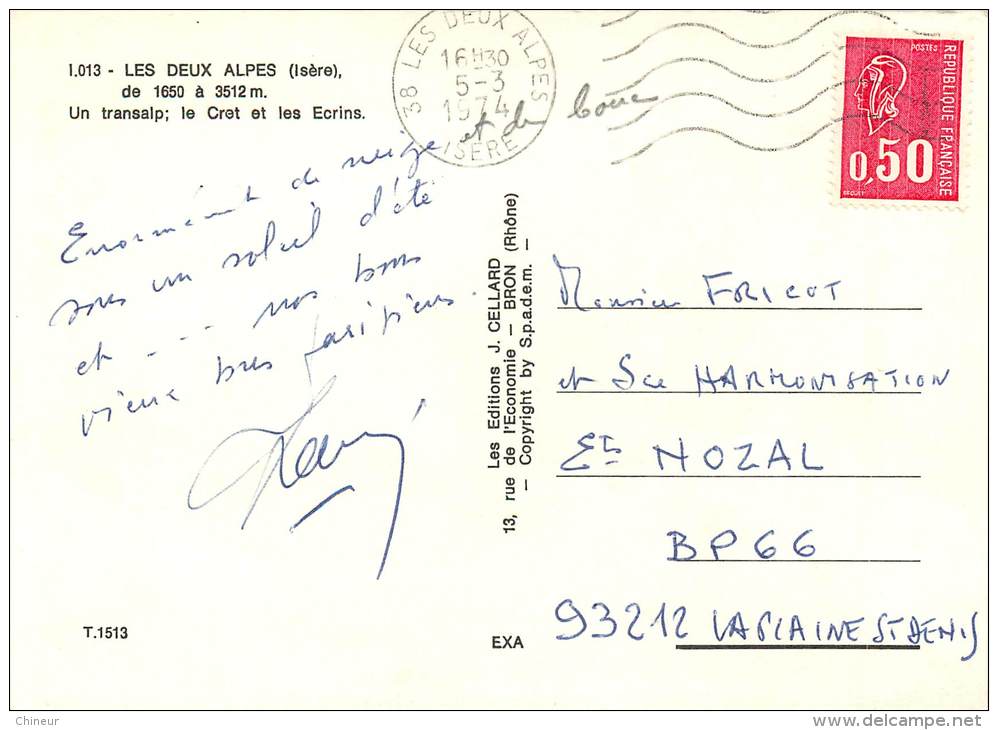 I.013 - LES DEUX ALPES (Isère),
de 1650 à 3512 m.
Un transalp; le Cret et les Ecrins.
38 LES DEUX ALPES
16H30
5-3
1974
ISERE
POSTES
REPUBLIQUE FRANÇAISE
0,50
Enormément de neige, et de
sous un soleil d'été
et --- nos bons
vieux bus parisiens.
Les Editions J. CELLARD
13, rue de l'Economie — BRON (Rhône)
— Copyright by S.p.a.d.e.m. —
Monsieur FRICOT
et Sce HARMONISATION
Ets NOZAL
BP 66
93212 LA PLAINE ST DENIS
T.1513
EXA
Chineur
delcampe.net